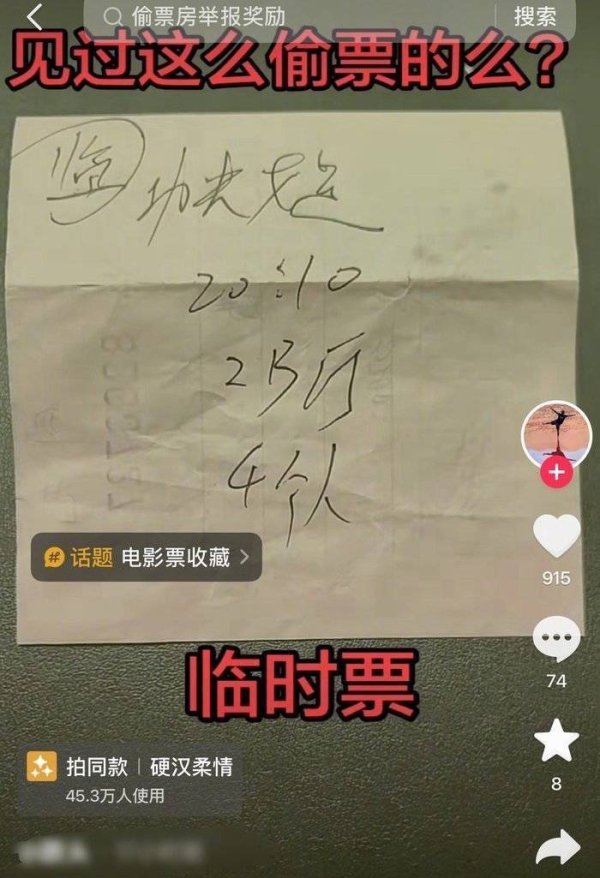 偷票房举报奖励
搜索
见过这么偷票的么？
临
功夫
20:10
2B厅
4个人
# 话题 电影票收藏 >
915
临时票
74
拍同款 | 硬汉柔情
45.3万人使用
8